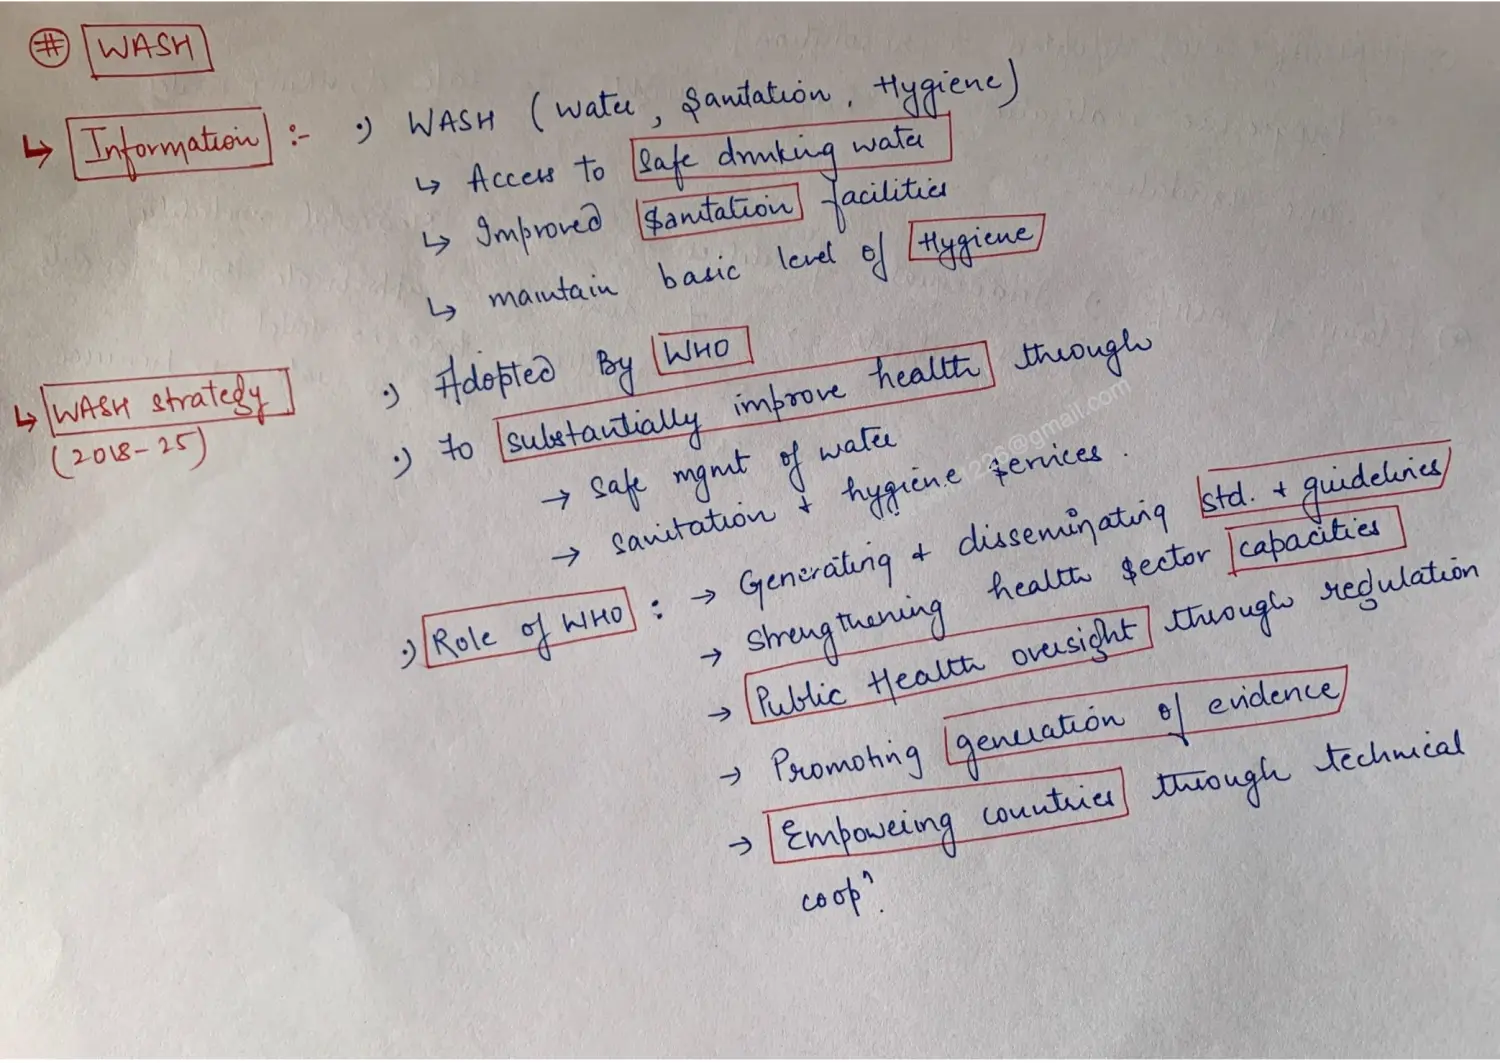 # WASH
↳ Information :- •) WASH (Water, Sanitation, Hygiene)
↳ Access to safe drinking water
↳ Improved Sanitation facilities
↳ maintain basic level of Hygiene
↳ WASH strategy (2018-25)
•) Adopted By WHO
•) to substantially improve health through
→ safe mgmt of water
→ sanitation + hygiene services.
•) Role of WHO : → Generating + disseminating std. + guidelines
→ strengthening health sector capacities
→ Public Health oversight through regulation
→ Promoting generation of evidence
→ Empowering countries through technical
coopⁿ.
@gmail.com